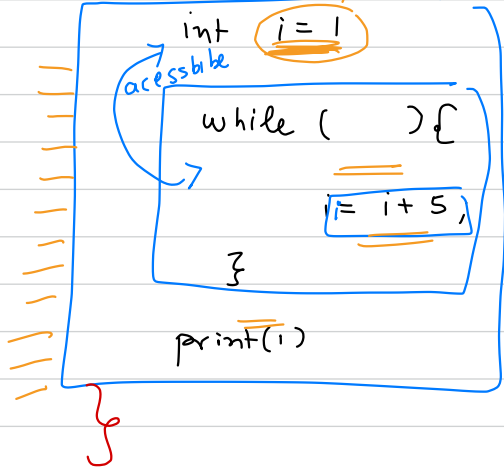 int i = 1
acessbibe
while ( ) {
i = i + 5 ,
}
print(i)
}